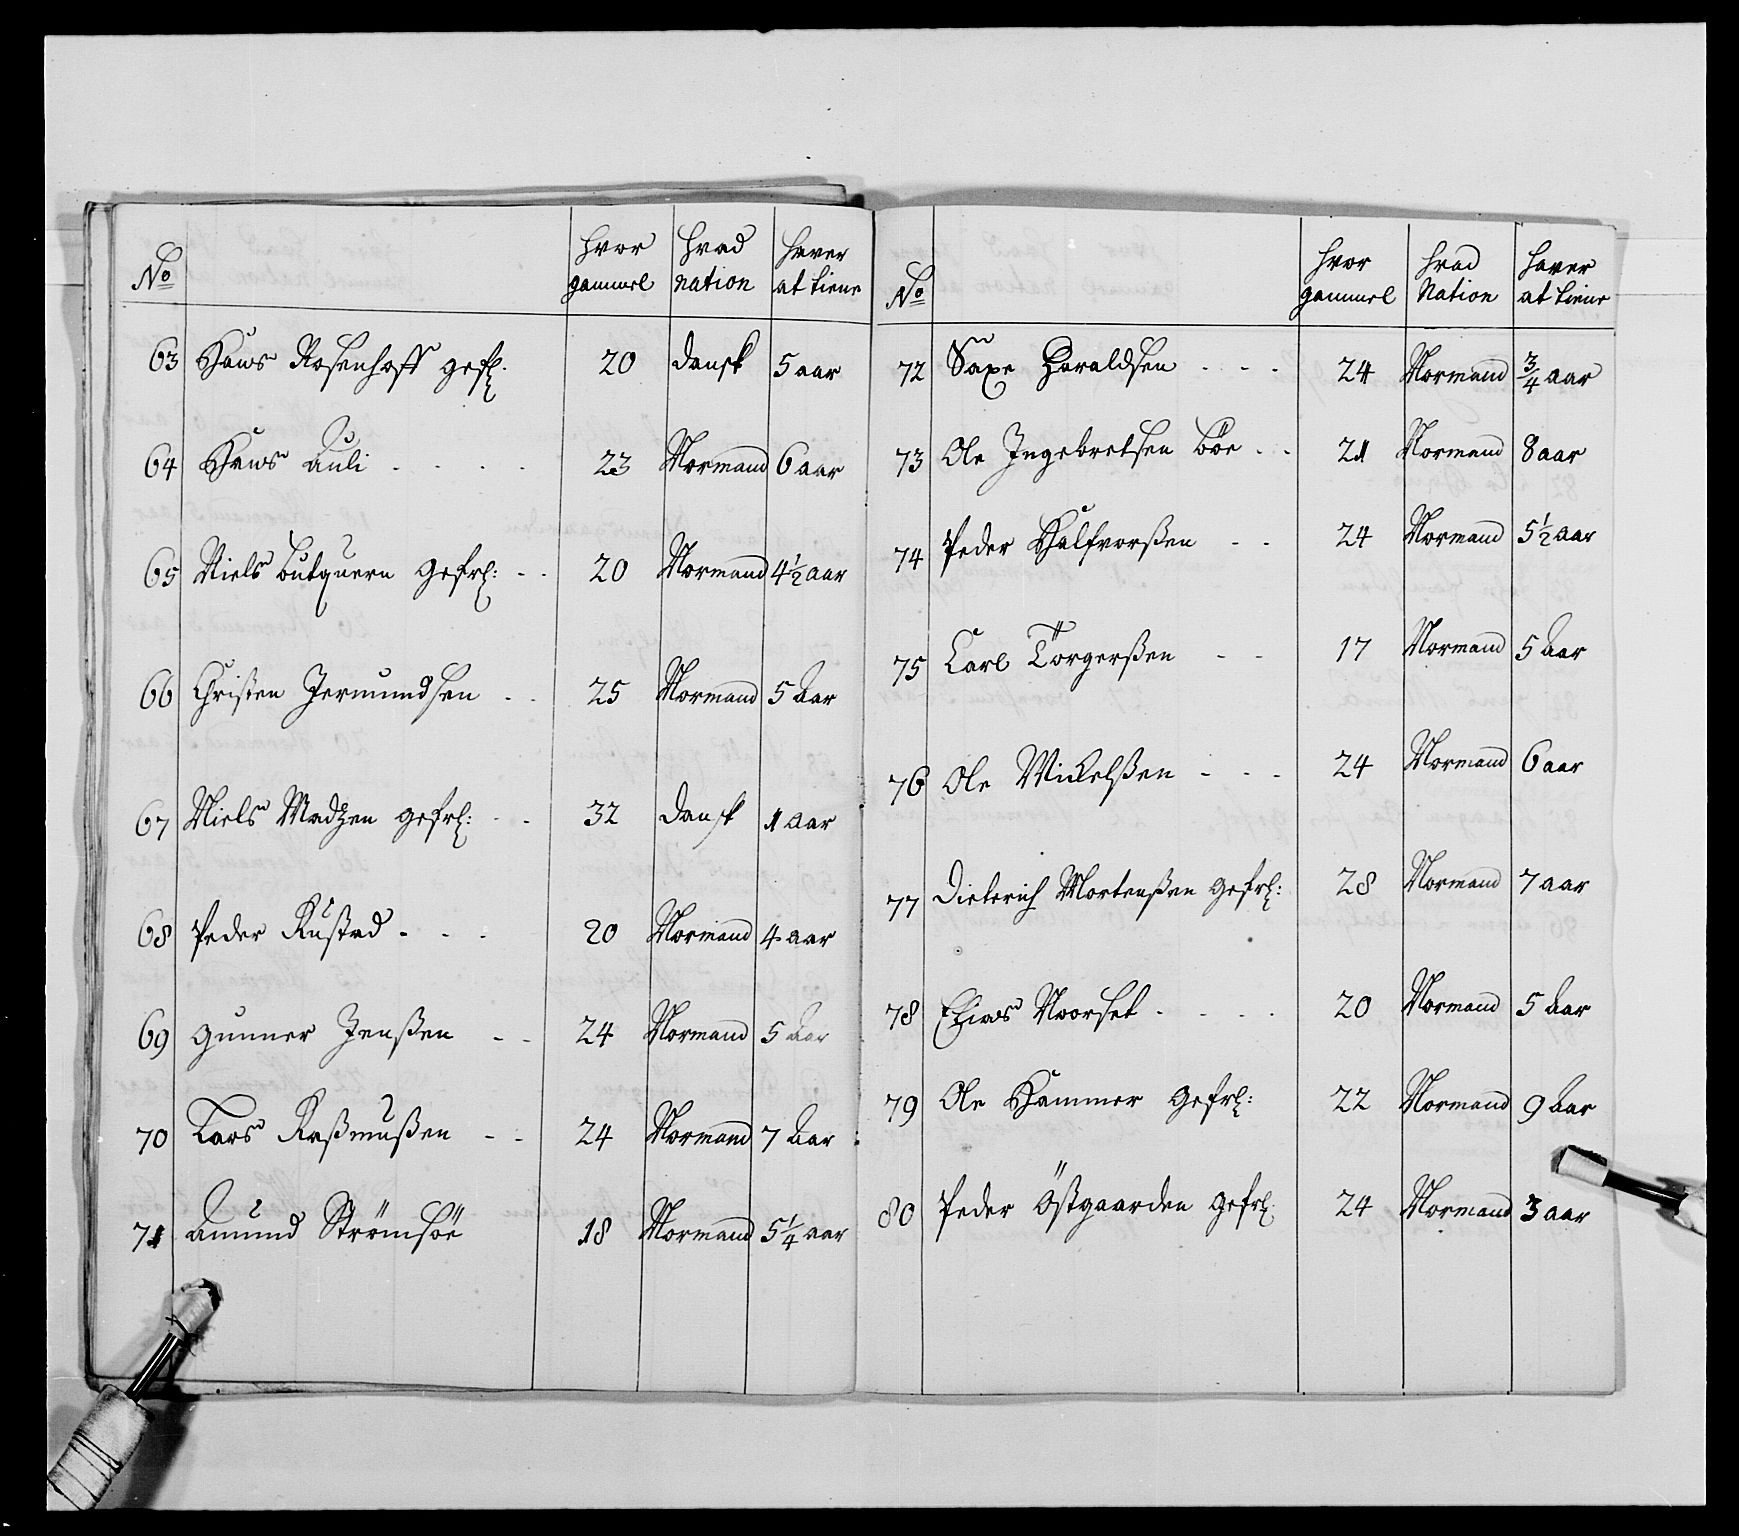 No hvor gammel hvad nation haver at tiene
63 Hans Rosenhoff gefr: 20 Dansk 5 aar
64 Hans Auli . . . . 23 Normand 6 aar
65 Niels butquern gefrl: - - 20 Normand 4½ aar
66 Christen Jermundsen . . 25 Normand 5 Aar
67 Niels Madtzen gefrl: - - 32 Dansk 1 aar
68 Peder Rustad - - - 20 Normand 4 aar
69 Gunner Jenßen - - 24 Normand 5 Aar
70 Lars Raßmußen - - 24 Normand 7 Aar
71 Amund Strömsöe 18 Normand 5¼ aar
No hvor gammel hvad Nation haver at tiene
72 Saxe Haraldsen . - - 24 Normand ¾ aar
73 Ole Ingebretsen böe . . 21 Normand 8 aar
74 Peder Halfvorßen - - 24 Normand 5½ aar
75 Carl Törgerßen - - 17 Normand 5 Aar
76 Ole Mickelßen - - - 24 Normand 6 aar
77 Dieterich Mortenßen gefrl: 28 Normand 7 aar
78 Elias Noorset . . . . 20 Normand 5 Aar
79 Ole Hammer gefrl: 22 Normand 9 Aar
80 Peder Östgaarden gefrl: 24 Normand 3 aar